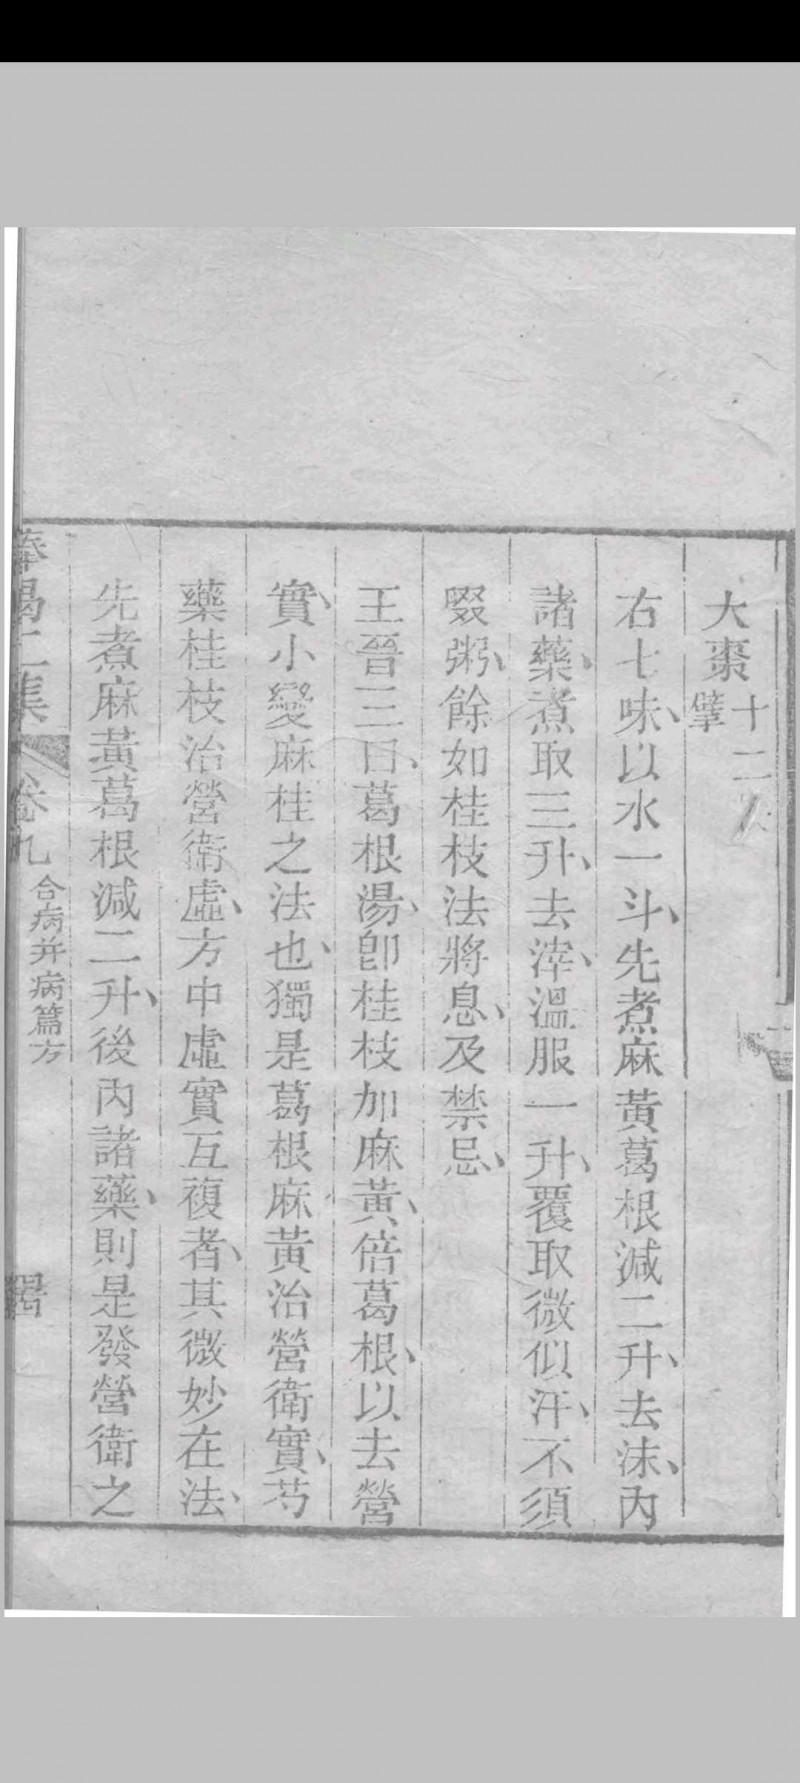 大棗十二枚
擘
右七味、以水一斗、先煮麻黃葛根減二升、去沫、內
諸藥、煮取三升、去滓、溫服一升、覆取微似汗、不須
啜粥、餘如桂枝法將息、及禁忌、
王晉三曰、葛根湯、卽桂枝加麻黃、倍葛根、以去營
實、小變麻桂之法也、獨是葛根麻黃治營衛實、芍
藥桂枝治營衛虛、方中虛實互複者、其微妙在法、
先煮麻黃葛根減二升、後內諸藥、則是發營衛之
二集 卷九 合病并病篇方